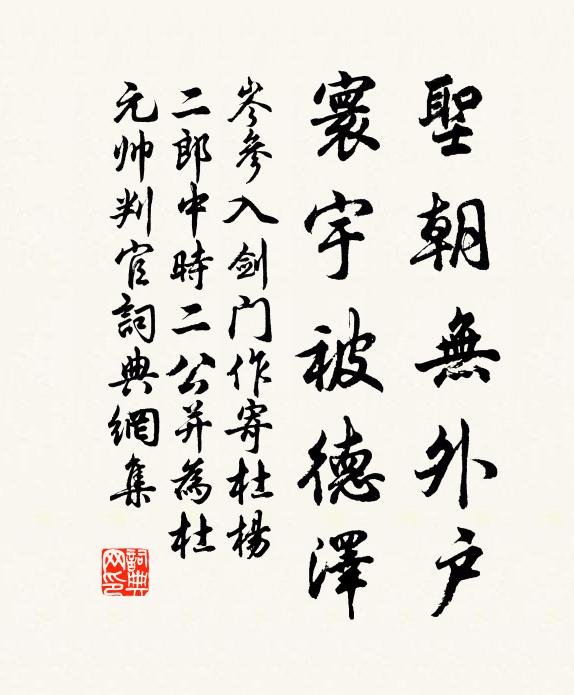 聖朝無外户
寰宇被德澤
岑參入剑门作寄杜楊
二郎中時二公并為杜
元帅判官詞典網集
詞典網印